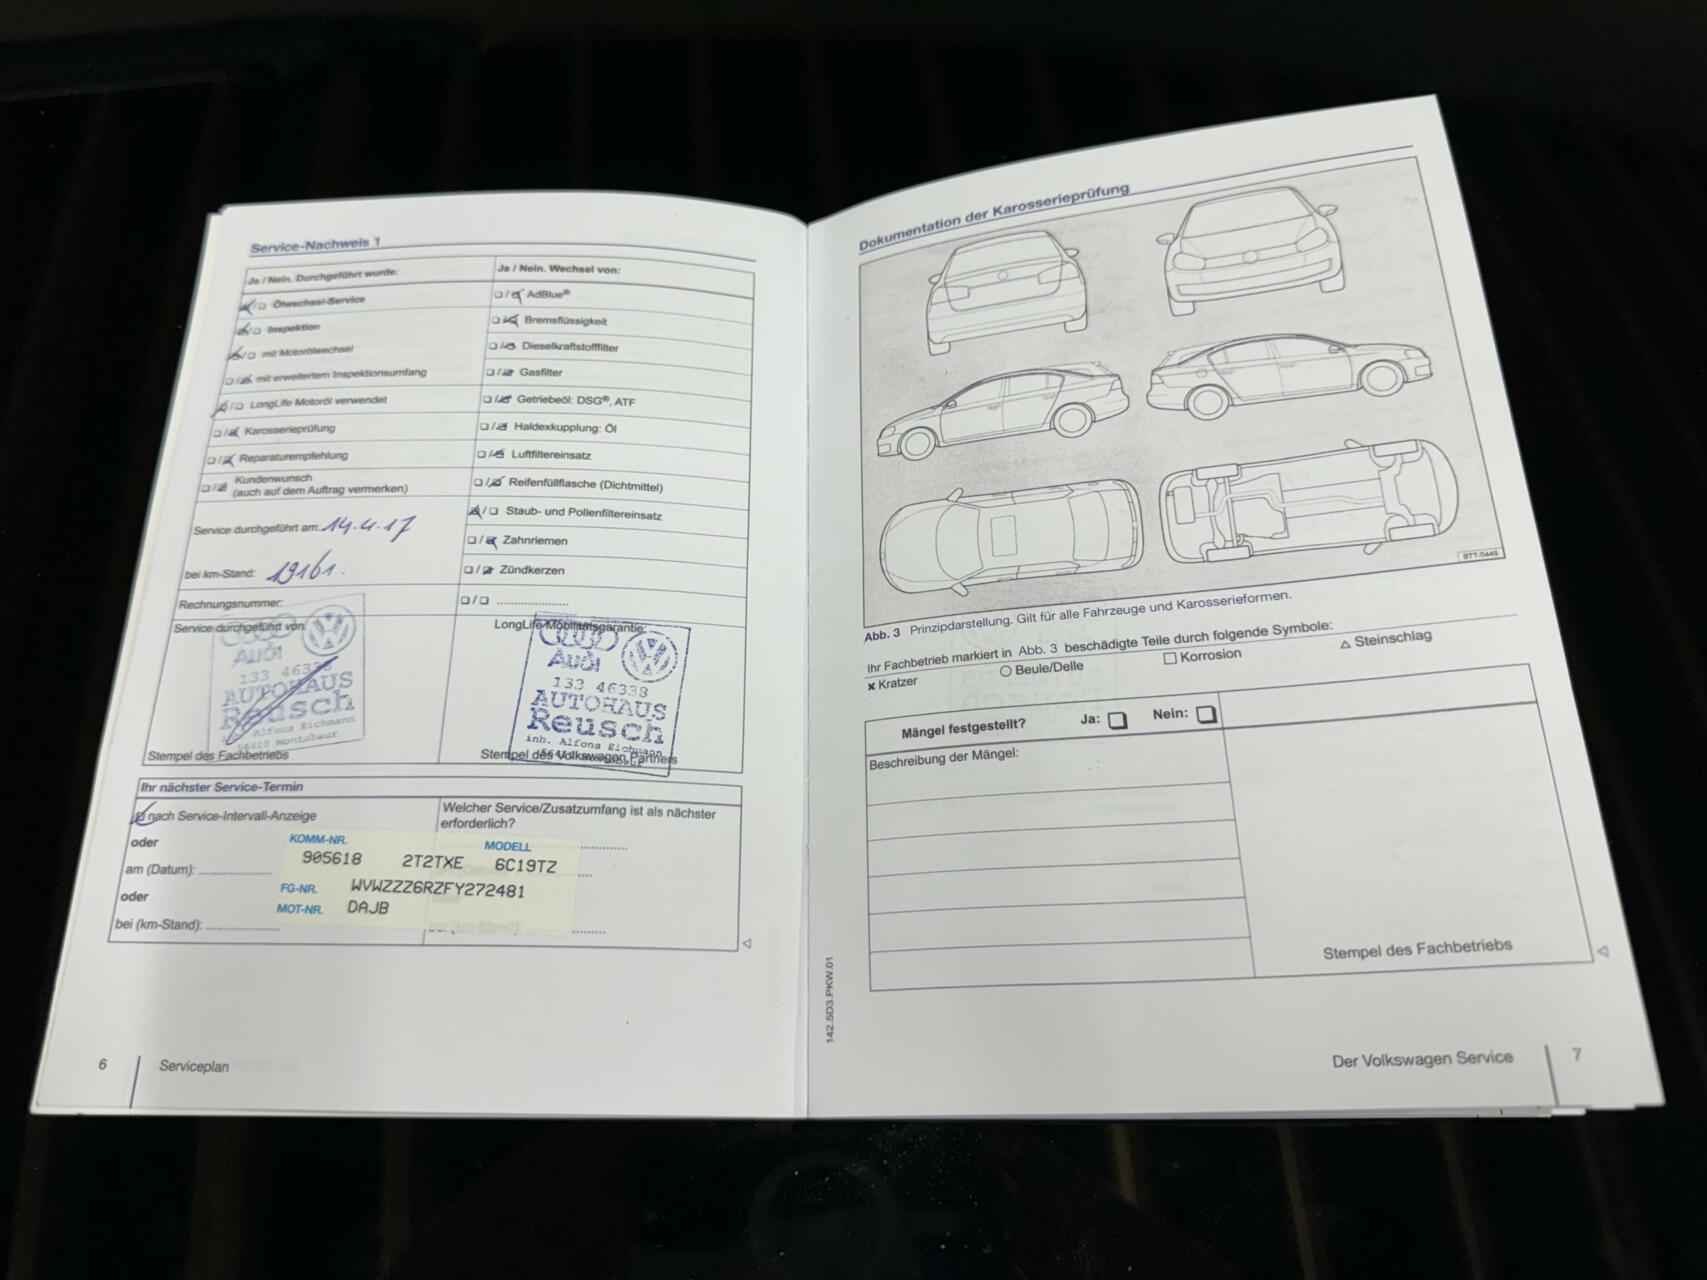 Service-Nachweis 1
Ja / Nein. Durchgeführt wurde:
Ölwechsel-Service
Inspektion
mit Motorölwechsel
mit erweitertem Inspektionsumfang
LongLife Motoröl verwendet
Karosserieprüfung
Reparaturempfehlung
Kundenwunsch
(auch auf dem Auftrag vermerken)
Service durchgeführt am: 14.4.17
bei km-Stand: 19161.
Rechnungsnummer:
Service durchgeführt von:
Audi
133 46338
AUTOHAUS
Reusch
Inh. Alfons Eichmann
56410 Montabaur
Stempel des Fachbetriebs
Ja / Nein. Wechsel von:
AdBlue®
Bremsflüssigkeit
Dieselkraftstofffilter
Gasfilter
Getriebeöl: DSG®, ATF
Haldexkupplung: Öl
Luftfiltereinsatz
Reifenfüllflasche (Dichtmittel)
Staub- und Pollenfiltereinsatz
Zahnriemen
Zündkerzen
LongLife-Mobilitätsgarantie:
Audi
133 46338
AUTOHAUS
Reusch
inh. Alfons Eichmann
Stempel des Volkswagen Partners
Ihr nächster Service-Termin
nach Service-Intervall-Anzeige
oder
am (Datum):
oder
bei (km-Stand):
Welcher Service/Zusatzumfang ist als nächster
erforderlich?
KOMM-NR. MODELL
905618 2T2TXE 6C19TZ
FG-NR. WVWZZZ6RZFY272481
MOT-NR. DAJB
6 Serviceplan
Dokumentation der Karosserieprüfung
BTT-0449
Abb. 3 Prinzipdarstellung. Gilt für alle Fahrzeuge und Karosserieformen.
Ihr Fachbetrieb markiert in Abb. 3 beschädigte Teile durch folgende Symbole:
× Kratzer ○ Beule/Delle □ Korrosion △ Steinschlag
Mängel festgestellt? Ja: Nein:
Beschreibung der Mängel:
Stempel des Fachbetriebs
142.5D3.PKW.01
Der Volkswagen Service 7